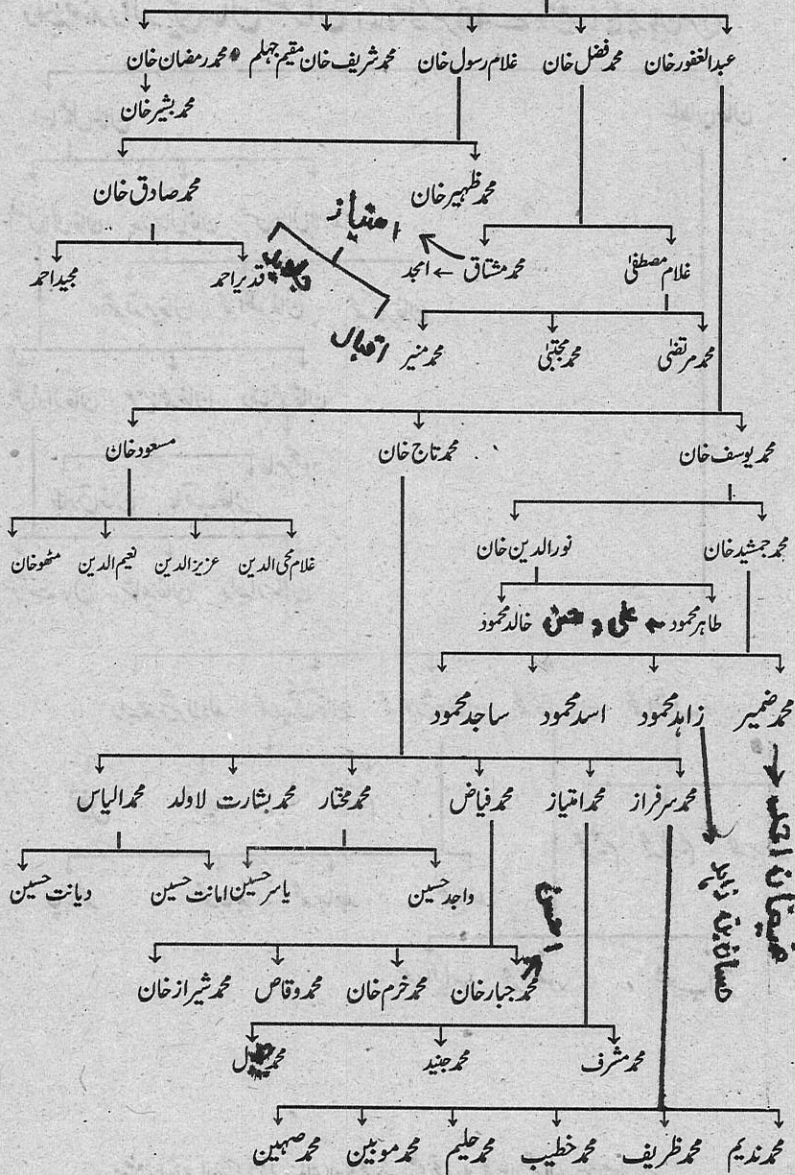 عبدالغفور خان محمد فضل خان غلام رسول خان محمد شریف خان مقیم جہلم محمد رمضان خان
محمد بشیر خان
محمد ظہیر خان محمد صادق خان
امتیاز
غلام مصطفیٰ محمد مشتاق ← امجد قدیر احمد مجید احمد
اقبال
محمد مرتضیٰ محمد مجتبیٰ محمد منیر
محمد یوسف خان محمد تاج خان مسعود خان
محمد جمشید خان نورالدین خان
غلام محی الدین عزیز الدین نعیم الدین مٹھو خان
طاہر محمود ← علی و حسن خالد محمود
محمد ضمیر زاہد محمود اسد محمود ساجد محمود
حسان بن زاہد
محمد سرفراز محمد امتیاز محمد فیاض محمد مختار محمد بشارت لاولد محمد الیاس
واجد حسین یاسر حسین امانت حسین دیانت حسین
احسن
محمد جبار خان محمد خرم خان محمد وقاص محمد شیراز خان
محمد مشرف محمد جنید محمد
محمد ندیم محمد ظریف محمد خطیب محمد حلیم محمد موبین محمد صہبین